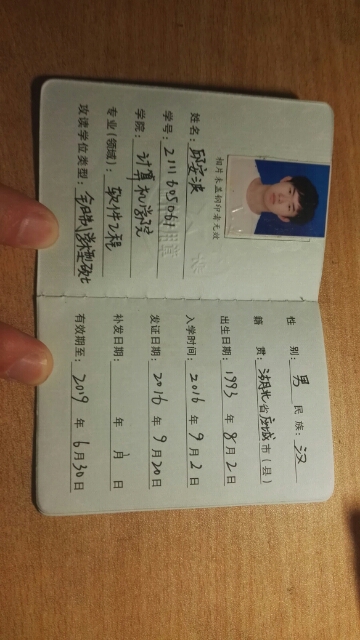 相片未盖钢印者无效
姓名：邱安波
学号：2111605061
学院：计算机学院
专业(领域)：软件工程
攻读学位类型：全日制学术型硕士
性别：男 民族：汉
籍贯：湖北省应城市(县)
出生日期：1993年8月2日
入学时间：2016年9月2日
发证日期：2016年9月20日
补发日期： 年 月 日
有效期至：2019年6月30日